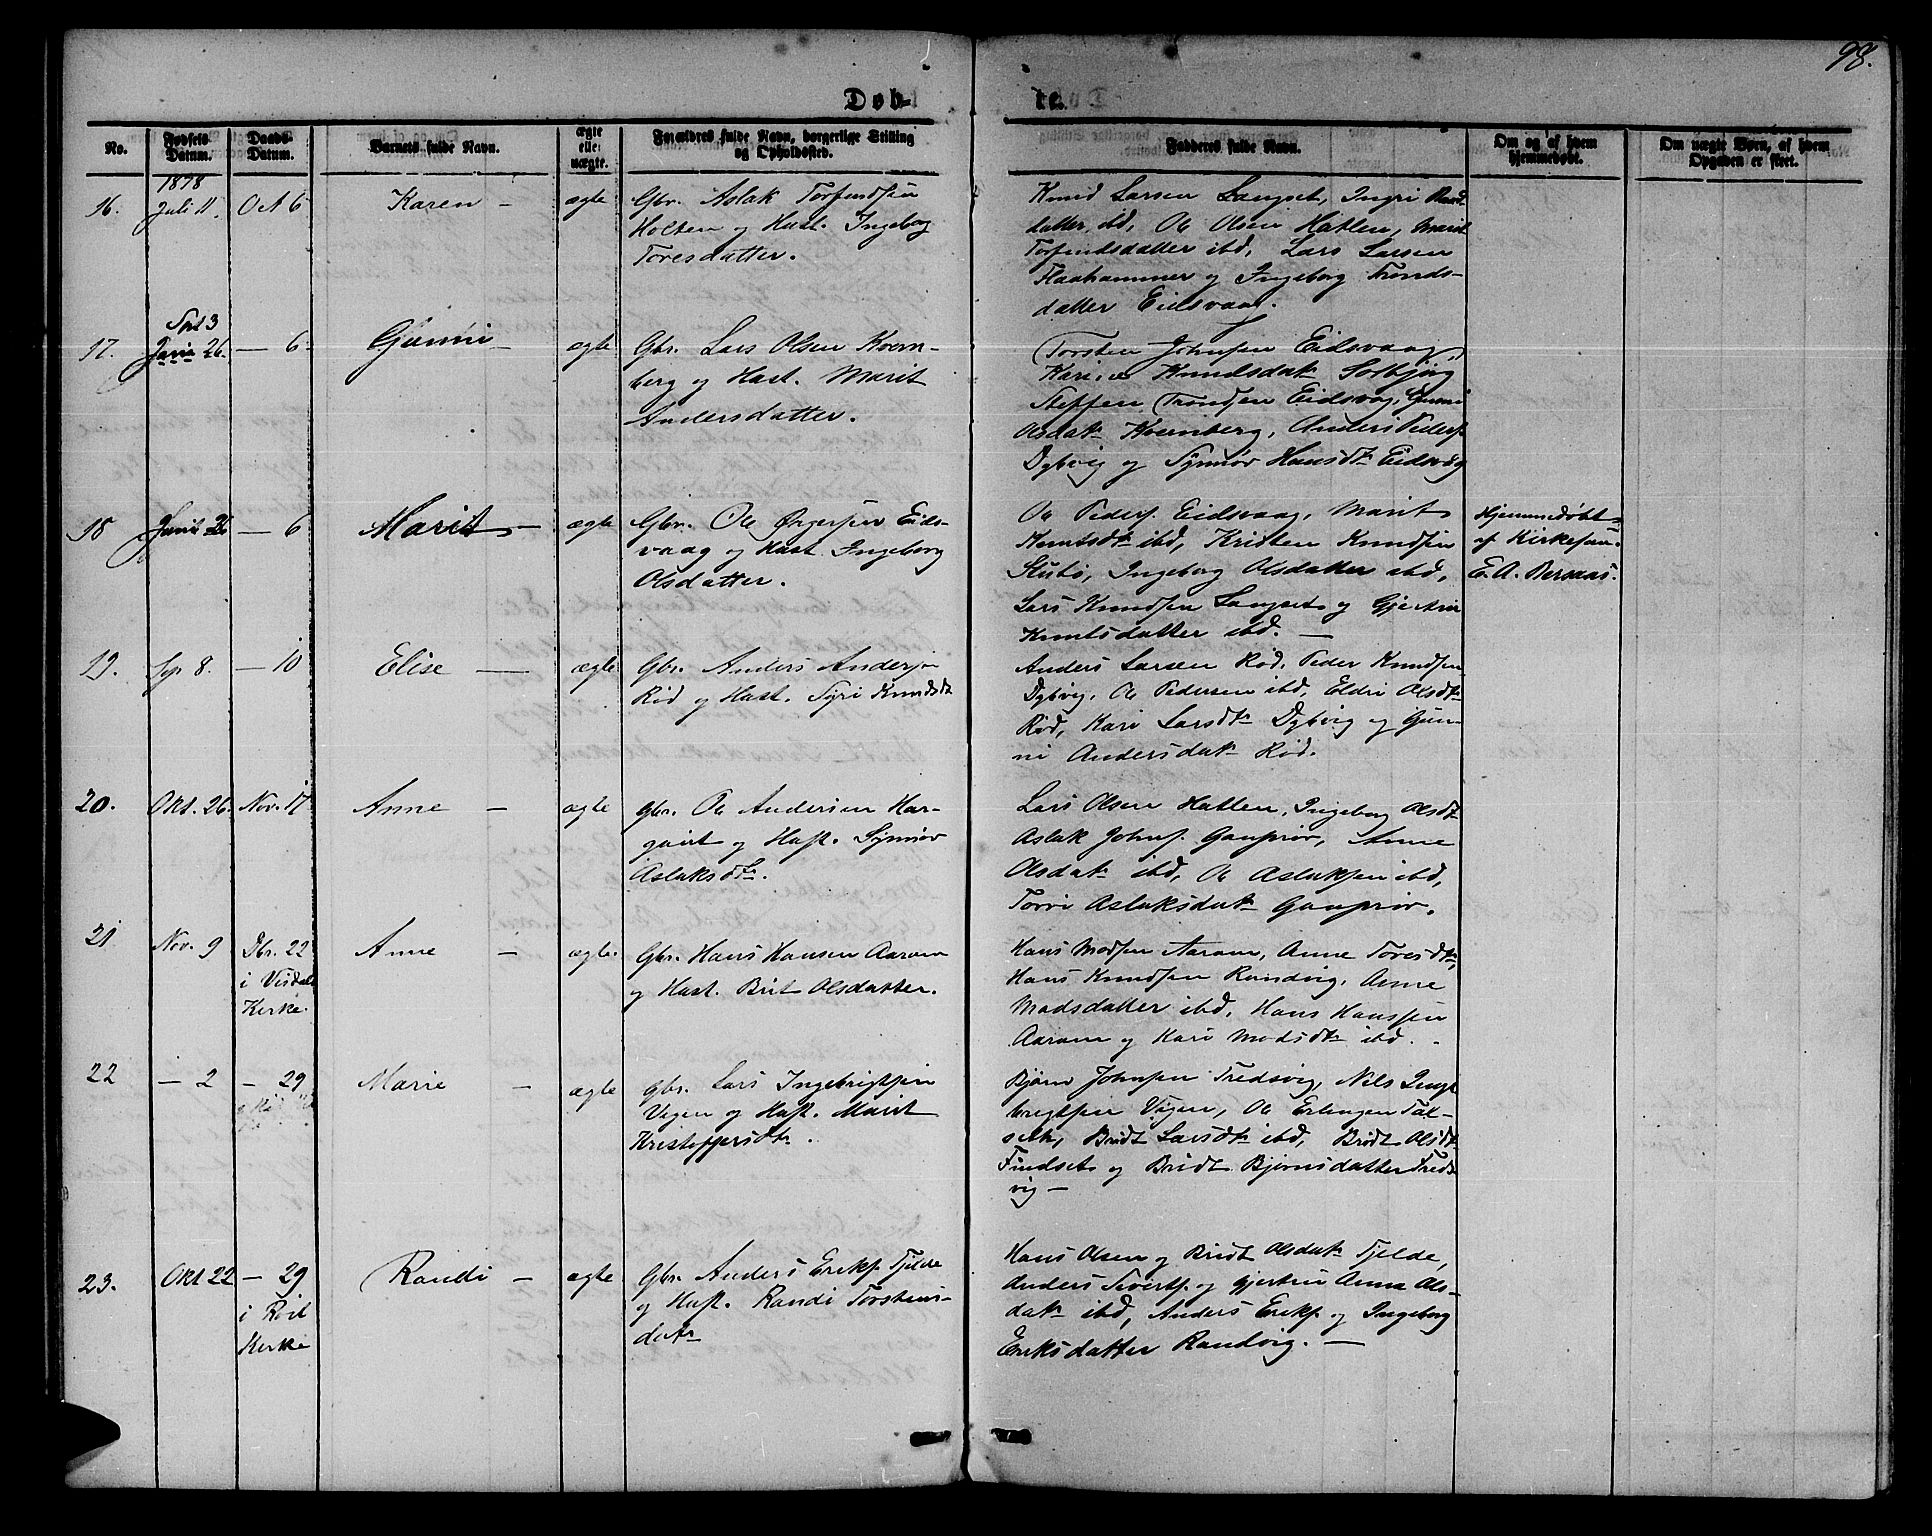 98.
Døb-
te.
No.
Fødsels Datum.
Daabs-Datum.
Barnets fulde Navn.
ægte eller uægte.
Forældres fulde Navn, borgerlige Stilling
og Opholdssted.
Faddernes fulde Navn.
Om og af hvem
hjemmedøbt.
Om uægte Børn, af hvem
Opgaven er skeet.
1878
16. Juli 11. Oct 6 Karen - ægte
Gbr. Aslak Torfindsen
Holten og Hust. Ingeborg
Toresdatter.
Knud Larsen Langset, Ingri
datter ibd, Ole Olsen Hatlen, Marit
Torfindsdatter ibd, Lars Larsen
Flaahammer og Ingeborg Tronds-
datter Eidsvaag.
17. 26. - 6. Gunni ægte
Gbr. Lars Olsen Kvern-
berg og Hust. Marit
Andersdatter.
Torsten Johnsen Eidsvaag,
Kari Knudsdatr Solbjørg
Steffen Trondsen Eidsvag, Gunni
Olsdatr Kvernberg, Anders Peders.
Dybvig og Synnøv Hansdtr Eidsvåg
18 - 6 Marit - ægte
Gbr. Ole Eids-
vaag og Hust Ingeborg
Olsdatter.
Ole Peders. Eidsvaag, Marit
Knutsdtr ibd, Kristen Knudsen
Stubø, Ingeborg Olsdatter ibd,
Lars Knudsen Langset og Gjertrin
Knutsdatter ibd. -
Hjemmedøbt
af Kirkesan.
E. A. Bersaas.
19. Sep 8. - 10 Elise - ægte
Gbr. Anders Anders.
Rød og Hust. Syri Knudsdtr
Anders Larsen Rød, Peder Knudsen
Dybvig, Ole Pedersen ibd, Eldri Olsdtr
Rød, Kari Larsdtr Dybvig og Gun-
ni Andersdatr Rød.
20. Okt. 26. Nov. 17 Anne - ægte
Gbr. Ole Andersen Har-
gaut og Hust. Synnøv
Aslaksdtr.
Lars Olsen Hatlen, Ingeborg Olsdtr
Aslak Johns. Gauprør, Anne
Olsdatr ibd, Ole Aslaksen ibd,
Torri Aslaksdatr Gauprør.
21 Nov. 9 Dbr. 22 Anne - ægte.
i Visdals
Kirke.
Gbr. Hans Hansen Aaram
og Hust. Brit Olsdatter.
Hans Madsen Aaram, Anne Toresdtr,
Hans Knudsen Randvig, Anne
Madsdatter ibd, Hans Hanssen
Aaram og Kari Madsdtr ibd.
22 - 2 - 29 Marie - ægte
Gbr. Lars Ingebrigtsen
Vigen og Hust. Marit
Kristoffersdtr.
Bjørn Johnsen Tredsvig, Nils Inge
brigtsen Vigen, Ole Erlingsen Tax-
set, Bridt Larsdtr ibd, Brødt Olsdtr
Findset og Bridt Bjørnsdatter Treds
vig -
23. Okt 22 - 29 Randi - ægte
i Rød
Kirke
Gbr. Anders Eriks. Tjelde
og Hust. Randi Torsteins-
datr
Hans Olsen og Bridt Olsdatr Tjelde,
Anders Siverts. og Gjertrin Anna Ols-
datr ibd, Anders Eriks. og Ingeborg
Eriksdatter Randvig. -